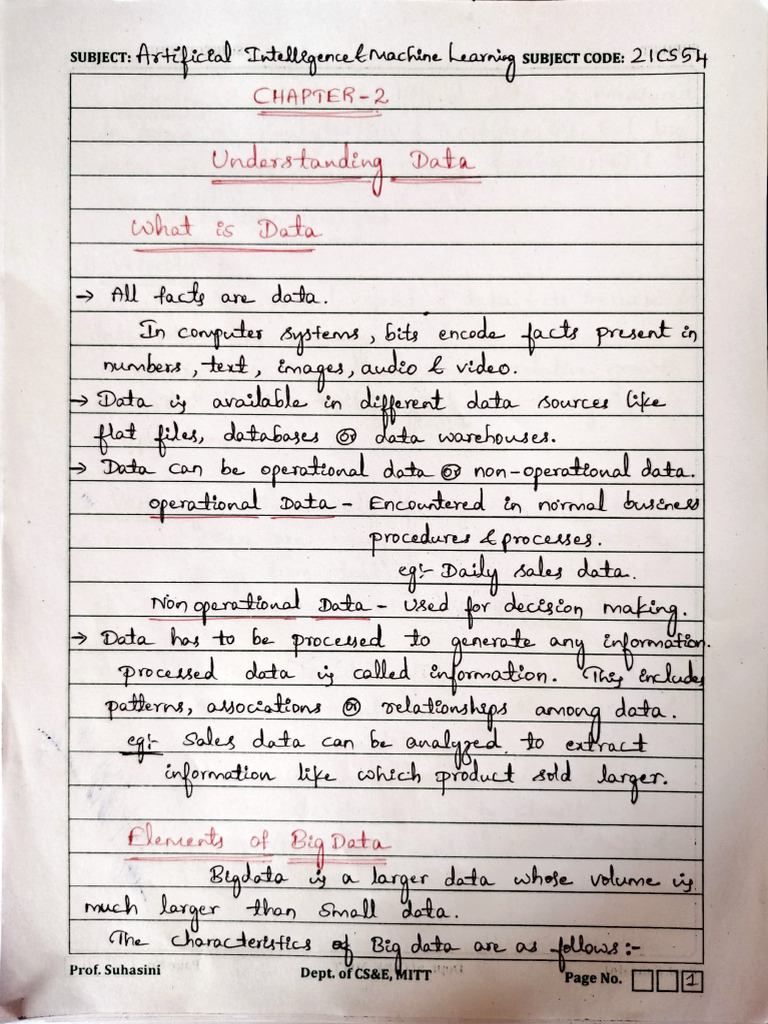 SUBJECT: Artificial Intelligence & Machine Learning SUBJECT CODE: 21CS54
CHAPTER-2
Understanding Data
What is Data
→ All facts are data.
In computer systems, bits encode facts present in
numbers, text, images, audio & video.
→ Data is available in different data sources like
flat files, databases or data warehouses.
→ Data can be operational data or non-operational data.
operational Data - Encountered in normal business
procedures & processes.
eg:- Daily sales data.
Non operational Data - Used for decision making.
→ Data has to be processed to generate any information.
processed data is called information. This includes
patterns, associations or relationships among data.
eg:- Sales data can be analyzed to extract
information like which product sold larger.
Elements of Big Data
Bigdata is a larger data whose volume is
much larger than small data.
The characteristics of Big data are as follows:-
Prof. Suhasini Dept. of CS&E, MITT Page No. 1